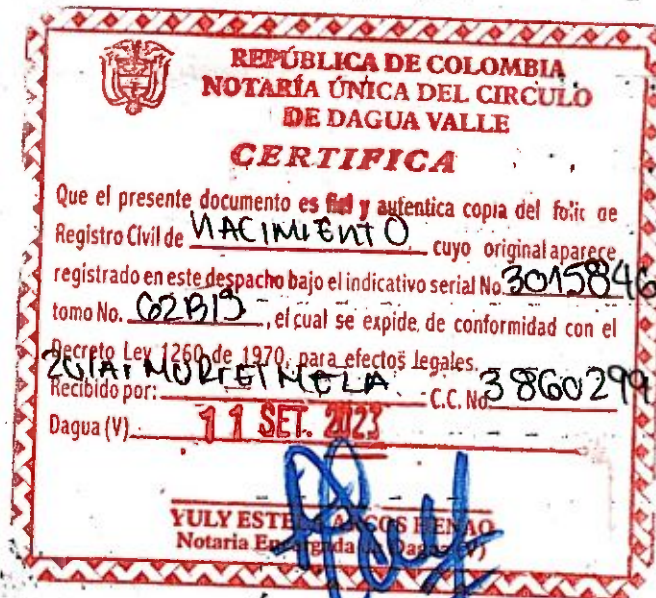 REPÚBLICA DE COLOMBIA
NOTARÍA ÚNICA DEL CIRCULO
DE DAGUA VALLE
CERTIFICA
Que el presente documento es fiel y autentica copia del folio de
Registro Civil de NACIMIENTO cuyo original aparece
registrado en este despacho bajo el indicativo serial No. 3015846
tomo No. , el cual se expide de conformidad con el
Decreto Ley 1260 de 1970, para efectos legales.
Recibido por: C.C. No. 3860299
Dagua (V) 11 SET. 2023
YULY ESTE HENAO
Notaria Encargada de Dagua (V)